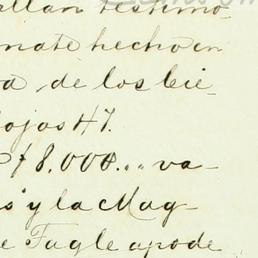 allan testimo-
mate hecho en
da, de los bie-
ojas 47.
8.000... va-
s" y la Mag-
e Tagle apode